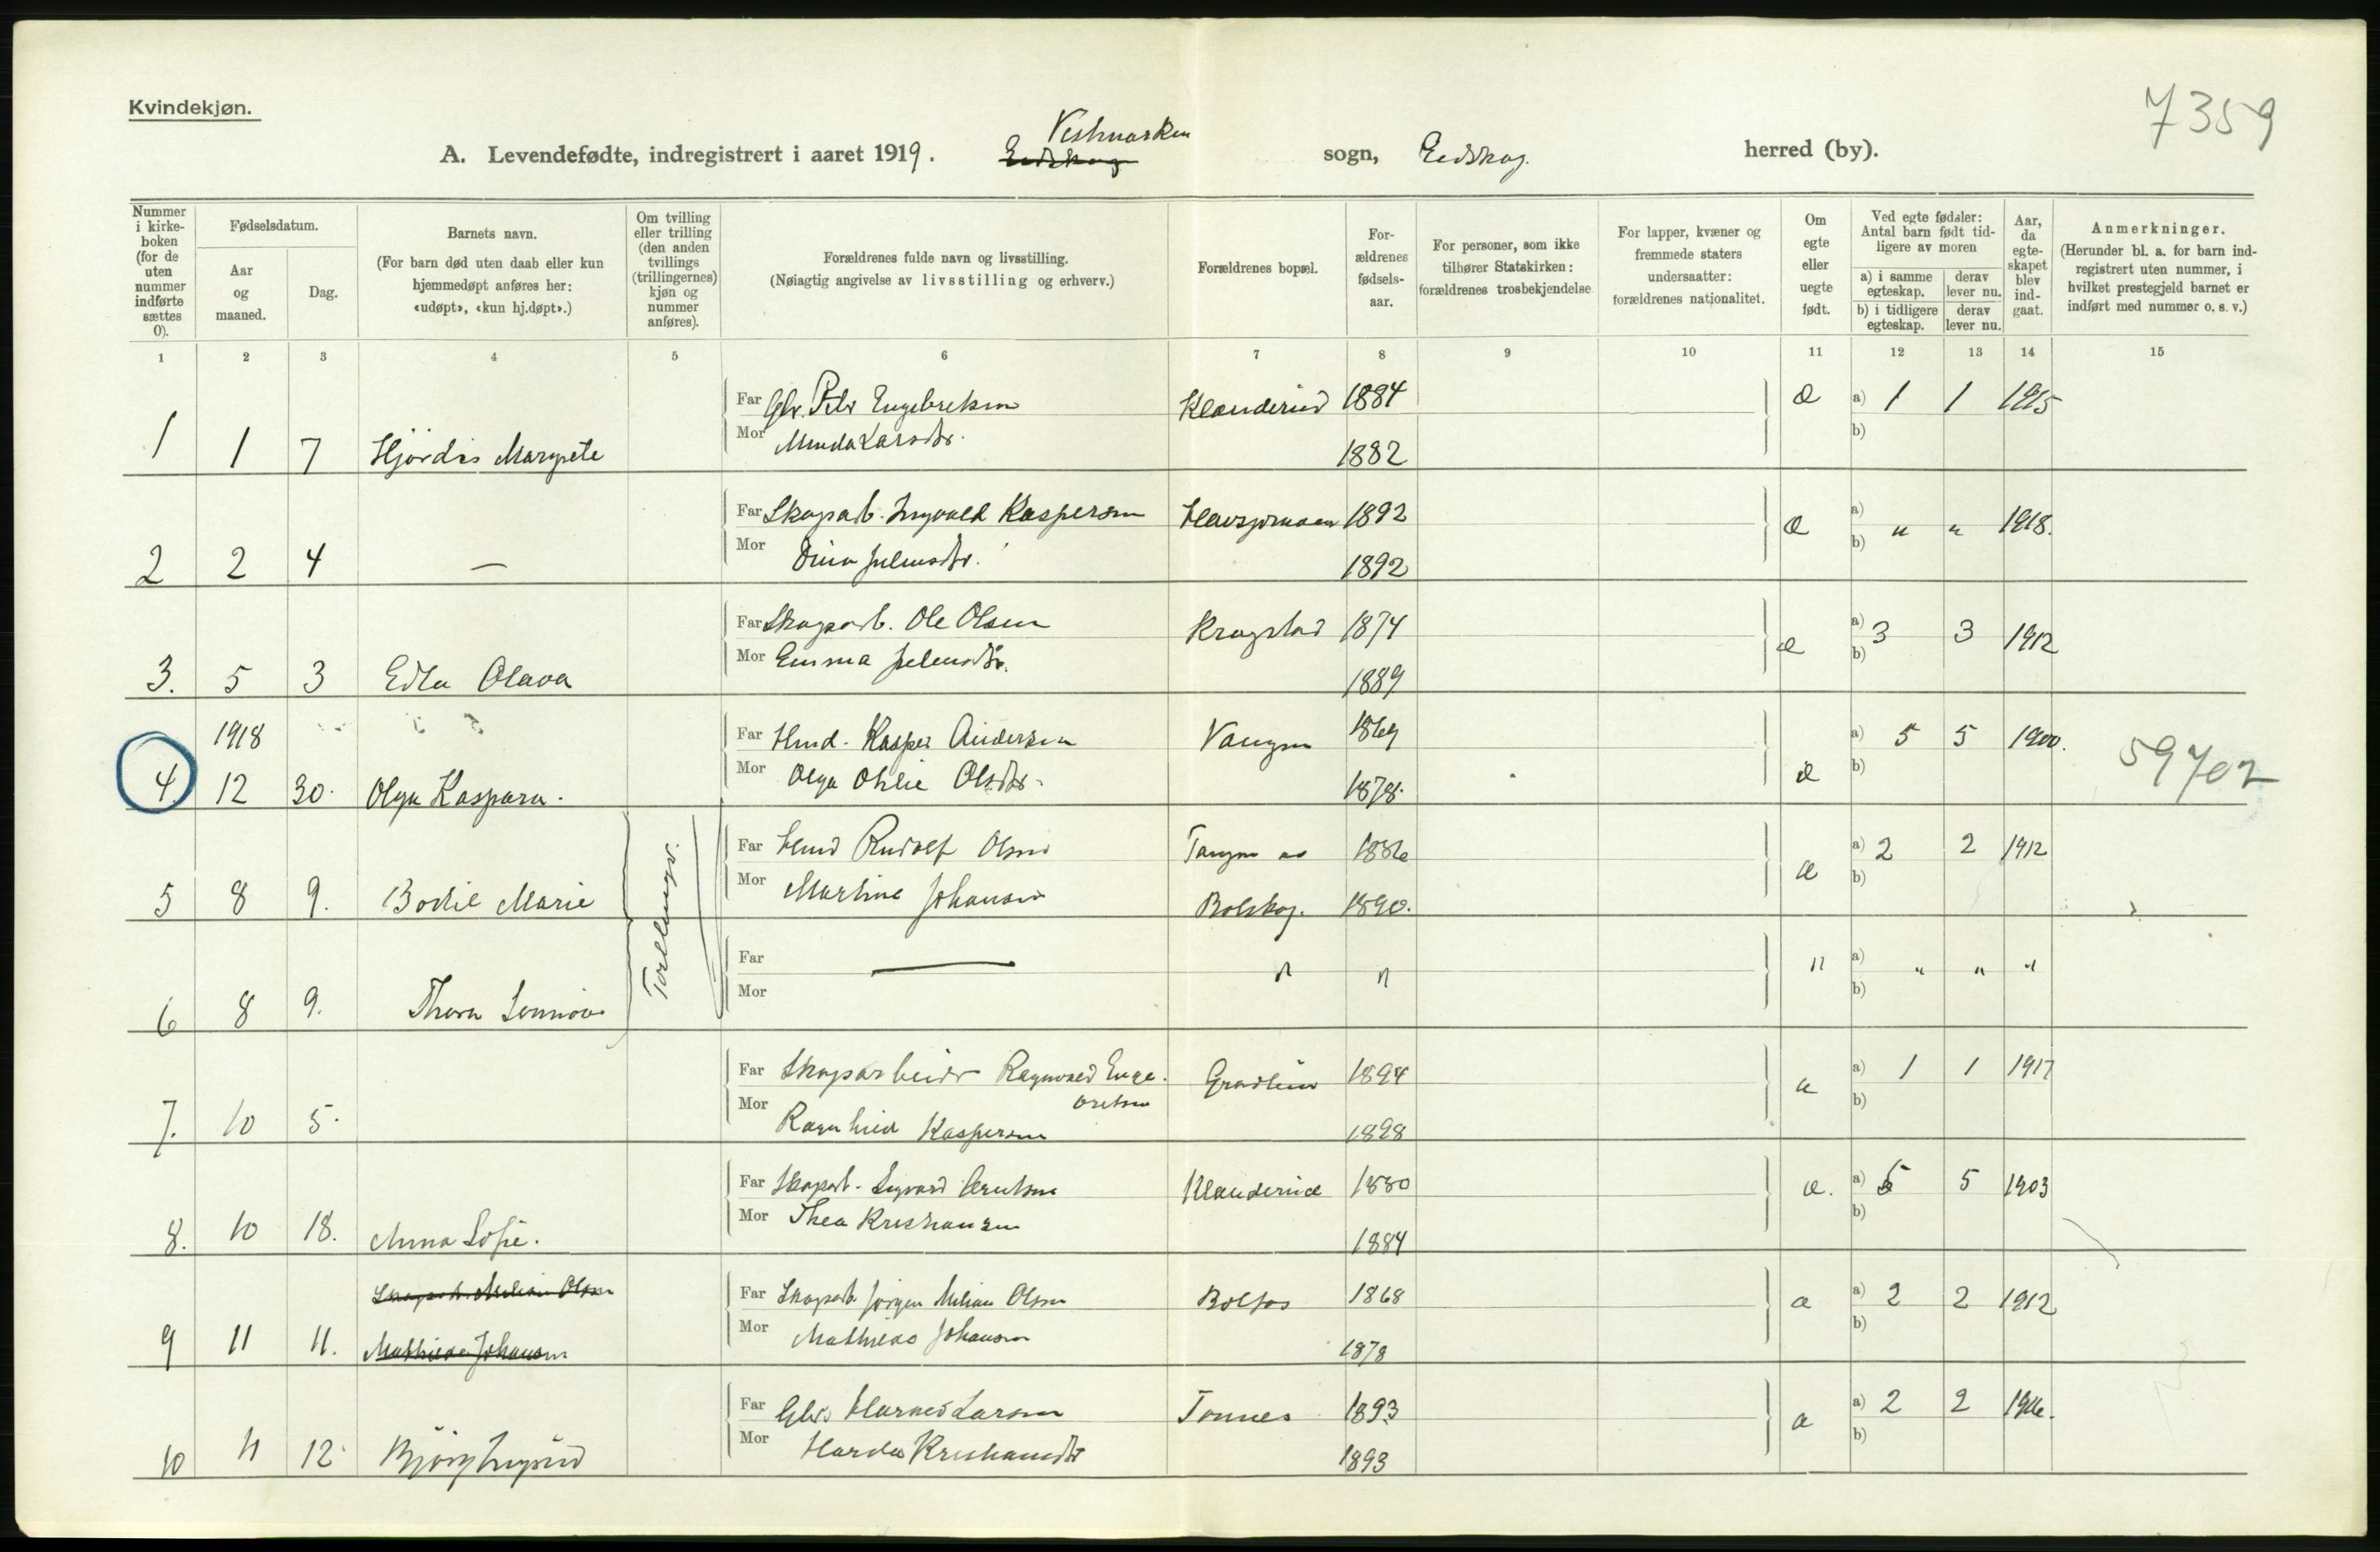 Kvindekjøn.
7359
Vestmarken
A. Levendefødte, indregistrert i aaret 1919. Eidskog sogn, Eidskog. herred (by).
Nummer i kirkeboken (for de uten nummer indførte sættes 0).
Fødselsdatum.
Aar og maaned.
Dag.
Barnets navn.
(For barn død uten daab eller kun hjemmedøpt anføres her: «udøpt», «kun hj.døpt».)
Om tvilling eller trilling (den anden tvillings (trillingernes) kjøn og nummer anføres).
Forældrenes fulde navn og livsstilling.
(Nøiagtig angivelse av livsstilling og erhverv.)
Forældrenes bopæl.
Forældrenes fødselsaar.
For personer, som ikke tilhører Statskirken: forældrenes trosbekjendelse
For lapper, kvæner og fremmede staters undersaatter: forældrenes nationalitet.
Om egte eller uegte født.
Ved egte fødsler: Antal barn født tidligere av moren
a) i samme egteskap.
derav lever nu.
b) i tidligere egteskap.
derav lever nu.
Aar, da egteskapet blev indgaat.
Anmerkninger.
(Herunder bl. a. for barn indregistrert uten nummer, i hvilket prestegjeld barnet er indført med nummer o. s. v.)
1 2 3 4 5 6 7 8 9 10 11 12 13 14 15
Far Gbr. Peter Engebretsen Klanderud 1884 æ a) 1 1 1915
Mor Minda Larsdtr. b)
1 1 7 Hjördis Margrete 1882
Far Skogarb. Ingvald Kaspersen 1892 æ a) " " 1918.
Mor b)
2 2 4 — 1892
Far Skogarb. Ole Olsen Krogstad 1874 æ a) 3 3 1912
Mor Emma b)
3. 5 3 Edla Olava 1889
1918 Far Hmd. Kasper Andersen Vangen 1869 æ a) 5 5 1900. 59702
Mor Olga Otilie Olsdtr. b)
4. 12 30. Olga Kaspara. 1878.
Far Hmd Rudolf Olsen Tangen 1886 æ a) 2 2 1912
Mor Martine Johansen b)
5 8 9. Bodil Marie Tvillinger. Bolskog. 1890.
Far — " " " a) " " "
Mor b)
6 8 9. Thora
Far Skogarbeider Ragnvald Enge- 1894 æ a) 1 1 1917
Mor bretsen b)
7. 10 5. Ragnhild Kaspersen 1898
Far Skogarb. Sigvard Klanderud 1880 æ. a) 5 5 1903
Mor Thea Kristiansen b)
8. 10 18. Anna Sofie. 1884
Skogarb. Milian Olsen Far Skogarb Jörgen Milian Olsen Bolfos 1868 æ a) 2 2 1912
Mor Mathilde Johansen b)
9 11 11. Mathilde Johansen 1878
Far Gbr. Larsen Tonnes 1893 æ a) 2 2 1916.
Mor Harda Kristiansdtr b)
10 11 12. Bjørg Ingrid 1893